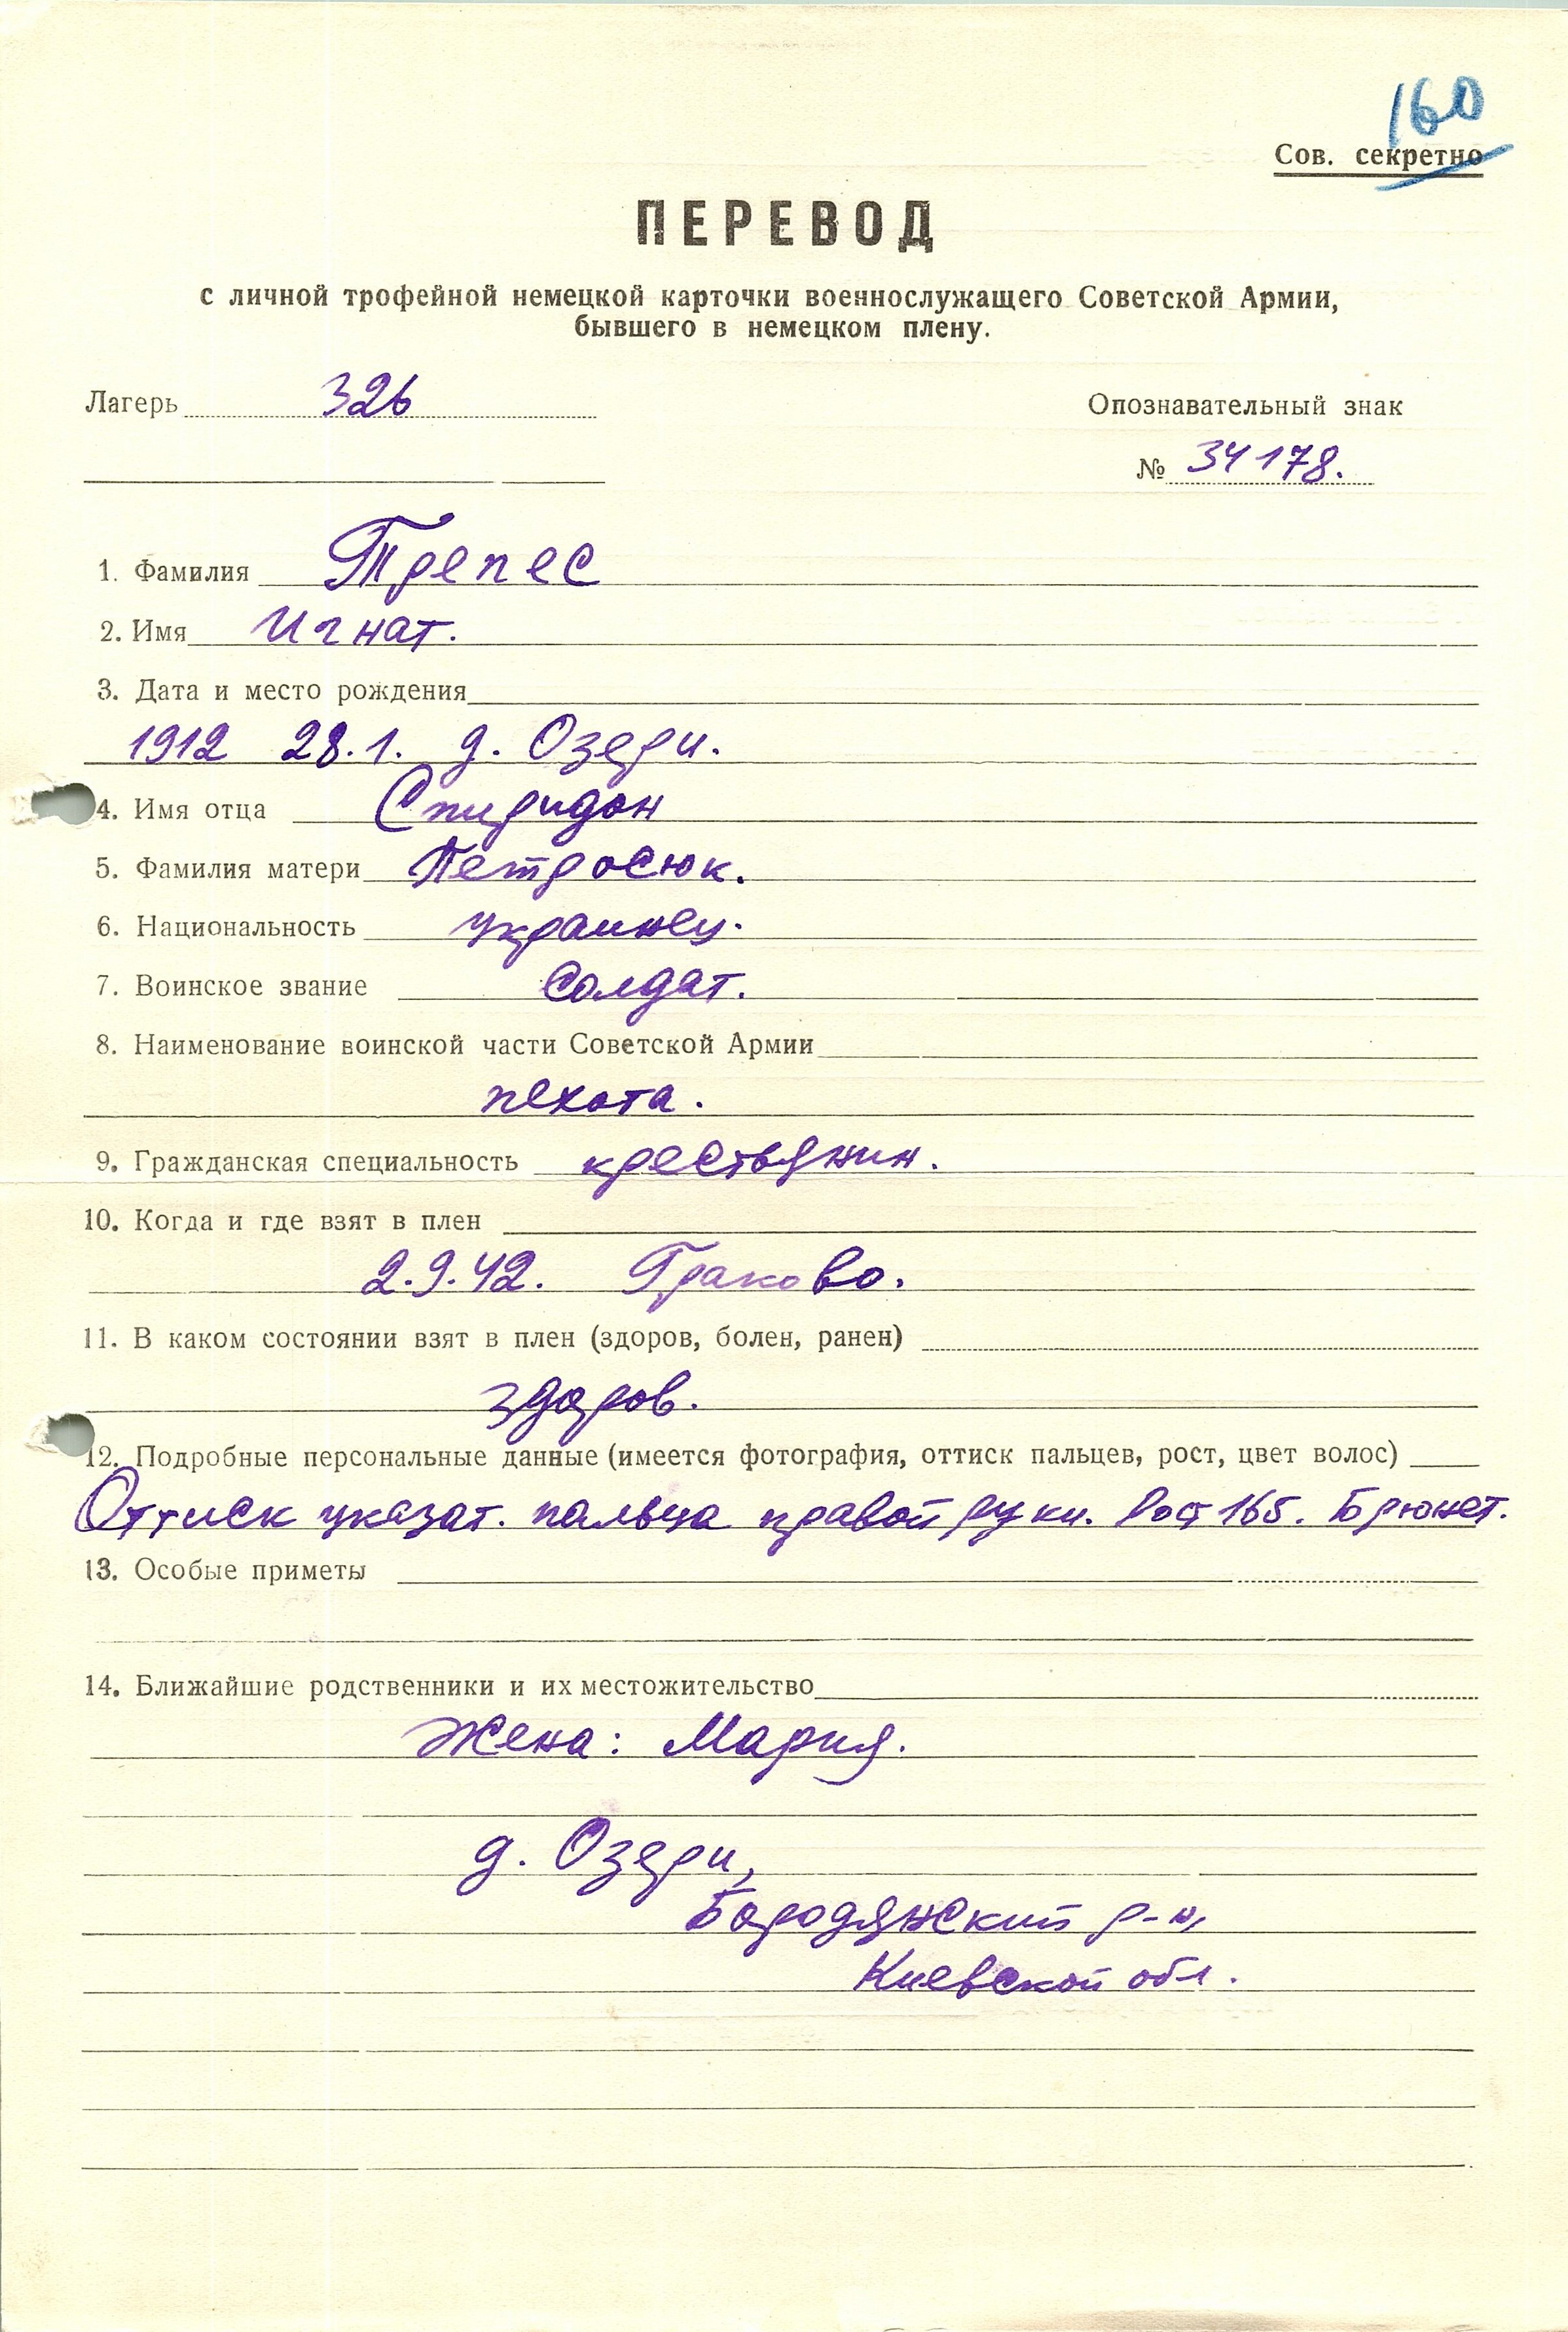 160
Сов. секретно
ПЕРЕВОД
с личной трофейной немецкой карточки военнослужащего Советской Армии,
бывшего в немецком плену.
Лагерь 326
Опознавательный знак
№ 34178.
1. Фамилия Трепес
2. Имя Игнат.
3. Дата и место рождения
1912 28.1. д. Озери.
4. Имя отца Спиридон
5. Фамилия матери Петросюк.
6. Национальность украинец.
7. Воинское звание Солдат.
8. Наименование воинской части Советской Армии
пехота.
9. Гражданская специальность крестьянин.
10. Когда и где взят в плен
2.9.42. Граково.
11. В каком состоянии взят в плен (здоров, болен, ранен)
здоров.
12. Подробные персональные данные (имеется фотография, оттиск пальцев, рост, цвет волос)
Оттиск указат. пальца правой руки. Рост 165. Брюнет.
13. Особые приметы
14. Ближайшие родственники и их местожительство
Жена: Мария.
д. Озери,
Бородянский р-н,
Киевской обл.